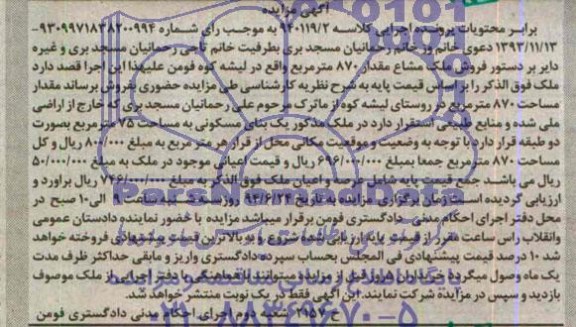 آگهی مزایده
برابر محتویات پرونده اجرایی کلاسه ۹۴۰۱۱۹/۲ به موجب رای شماره ۹۳۰۹۹۷۱۸۳۸۲۰۰۹۹۴-
۱۳۹۳/۱۱/۱۳ دعوی خانم ور خانم رحمانیان مسجد بری بطرفیت خانم تاجی رحمانیان مسجد بری و غیره
دایر بر دستور فروش ملک مشاع مقدار ۸۷۰ مترمربع واقع در لیشه کوه فومن علیهذا این اجرا قصد دارد
ملک فوق الذکر را بر اساس قیمت پایه به شرح نظریه کارشناسی طی مزایده حضوری بفروش برساند مقدار
مساحت ۸۷۰ مترمربع در روستای لیشه کوه از ماترک مرحوم علی رحمانیان مسجد بری که خارج از اراضی
ملی شده و منابع طبیعی استقرار دارد در ملک مذکور یک بنای مسکونی به مساحت ۷۵ مترمربع بصورت
دو طبقه قرار دارد با توجه به وضعیت و موقعیت مکانی محل از قرار هر متر مربع به مبلغ ۸۰۰/۰۰۰ ریال و کل
مساحت ۸۷۰ مترمربع جمعا بمبلغ ۶۹۶/۰۰۰/۰۰۰ ریال و قیمت اعیانی موجود در ملک به مبلغ ۵۰/۰۰۰/۰۰۰
ریال می باشد جمع قیمت پایه شامل عرصه و اعیان ملک فوق الذکر به مبلغ ۷۴۶/۰۰۰/۰۰۰ ریال براورد و
ارزیابی گردیده است زمان برگزاری مزایده به تاریخ ۹۳/۶/۲۴ روز سه شنبه ساعت ۹ الی ۱۰ صبح در
محل دفتر اجرای احکام مدنی دادگستری فومن برقرار میباشد مزایده با حضور نماینده دادستان عمومی
وانقلاب راس ساعت مقرر از قیمت پایه ارزیابی شده شروع و به بالاترین قیمت پیشنهادی فروخته خواهد
شد ۱۰ درصد قیمت پیشنهادی فی المجلس بحساب سپرده دادگستری واریز و مابقی حداکثر ظرف مدت
یک ماه وصول میگردد خریداران قبل از مزایده میتوانند با هماهنگی با دفتر اجرایی از ملک موصوف
بازدید و سپس در مزایده شرکت نمایند این آگهی فقط در یک نوبت منتشر خواهد شد.
ح ۳۹۵۷ شعبه دوم اجرای احکام مدنی دادگستری فومن
ParsNamadData